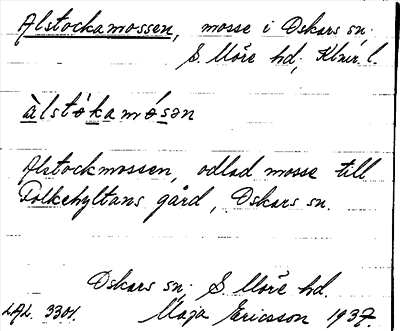 Alstockamossen, mosse i Oskars sn;
S. Möre hd; Klmr. l.
àlstókamósən
Alstockmossen, odlad mosse till
Folkehyltans gård, Oskars sn.
Oskars sn; S. Möre hd.
LAL. 3301. Maja Ericsson 1937.